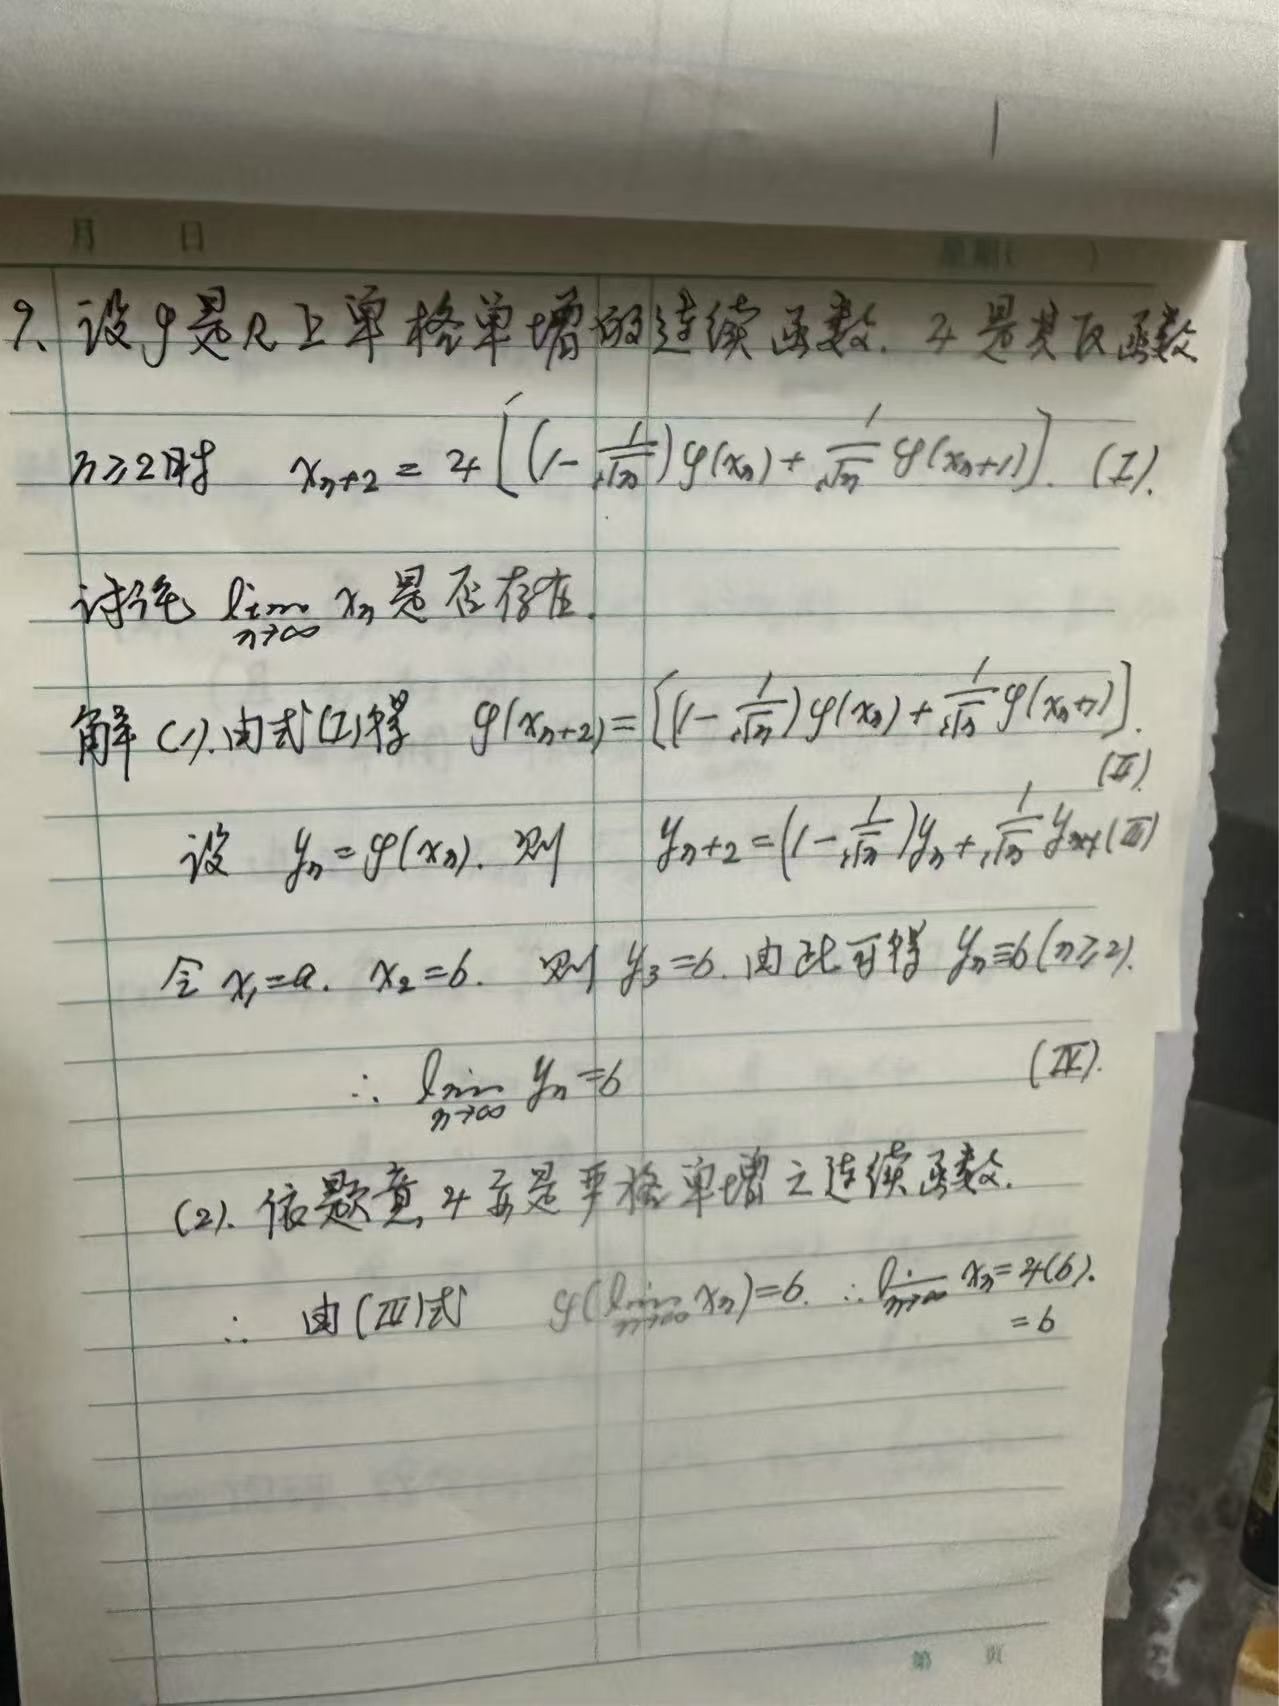 月 日 星期( )
9、设φ是R上单格单增的连续函数. ψ是其反函数
n≥2时 xₙ₊₂ = ψ[(1-1/√n)φ(xₙ)+1/√n φ(xₙ₊₁)]. (I).
讨论 lim n→∞ xₙ是否存在.
解(1).由式(I)得 φ(xₙ₊₂)=[(1-1/√n)φ(xₙ)+1/√n φ(xₙ₊₁)].
(II)
设 yₙ=φ(xₙ). 则 yₙ₊₂=(1-1/√n)yₙ+1/√n yₙ₊₁(III)
令 x₁=a. x₂=b. 则 y₃=b. 由此可得 yₙ=b(n≥2).
∴ lim n→∞ yₙ=b (IV).
(2). 依题意, ψ亦是严格单增之连续函数.
∴ 由(III)式 φ(lim n→∞ xₙ)=b. ∴ lim n→∞ xₙ=ψ(b).
=b
第 页